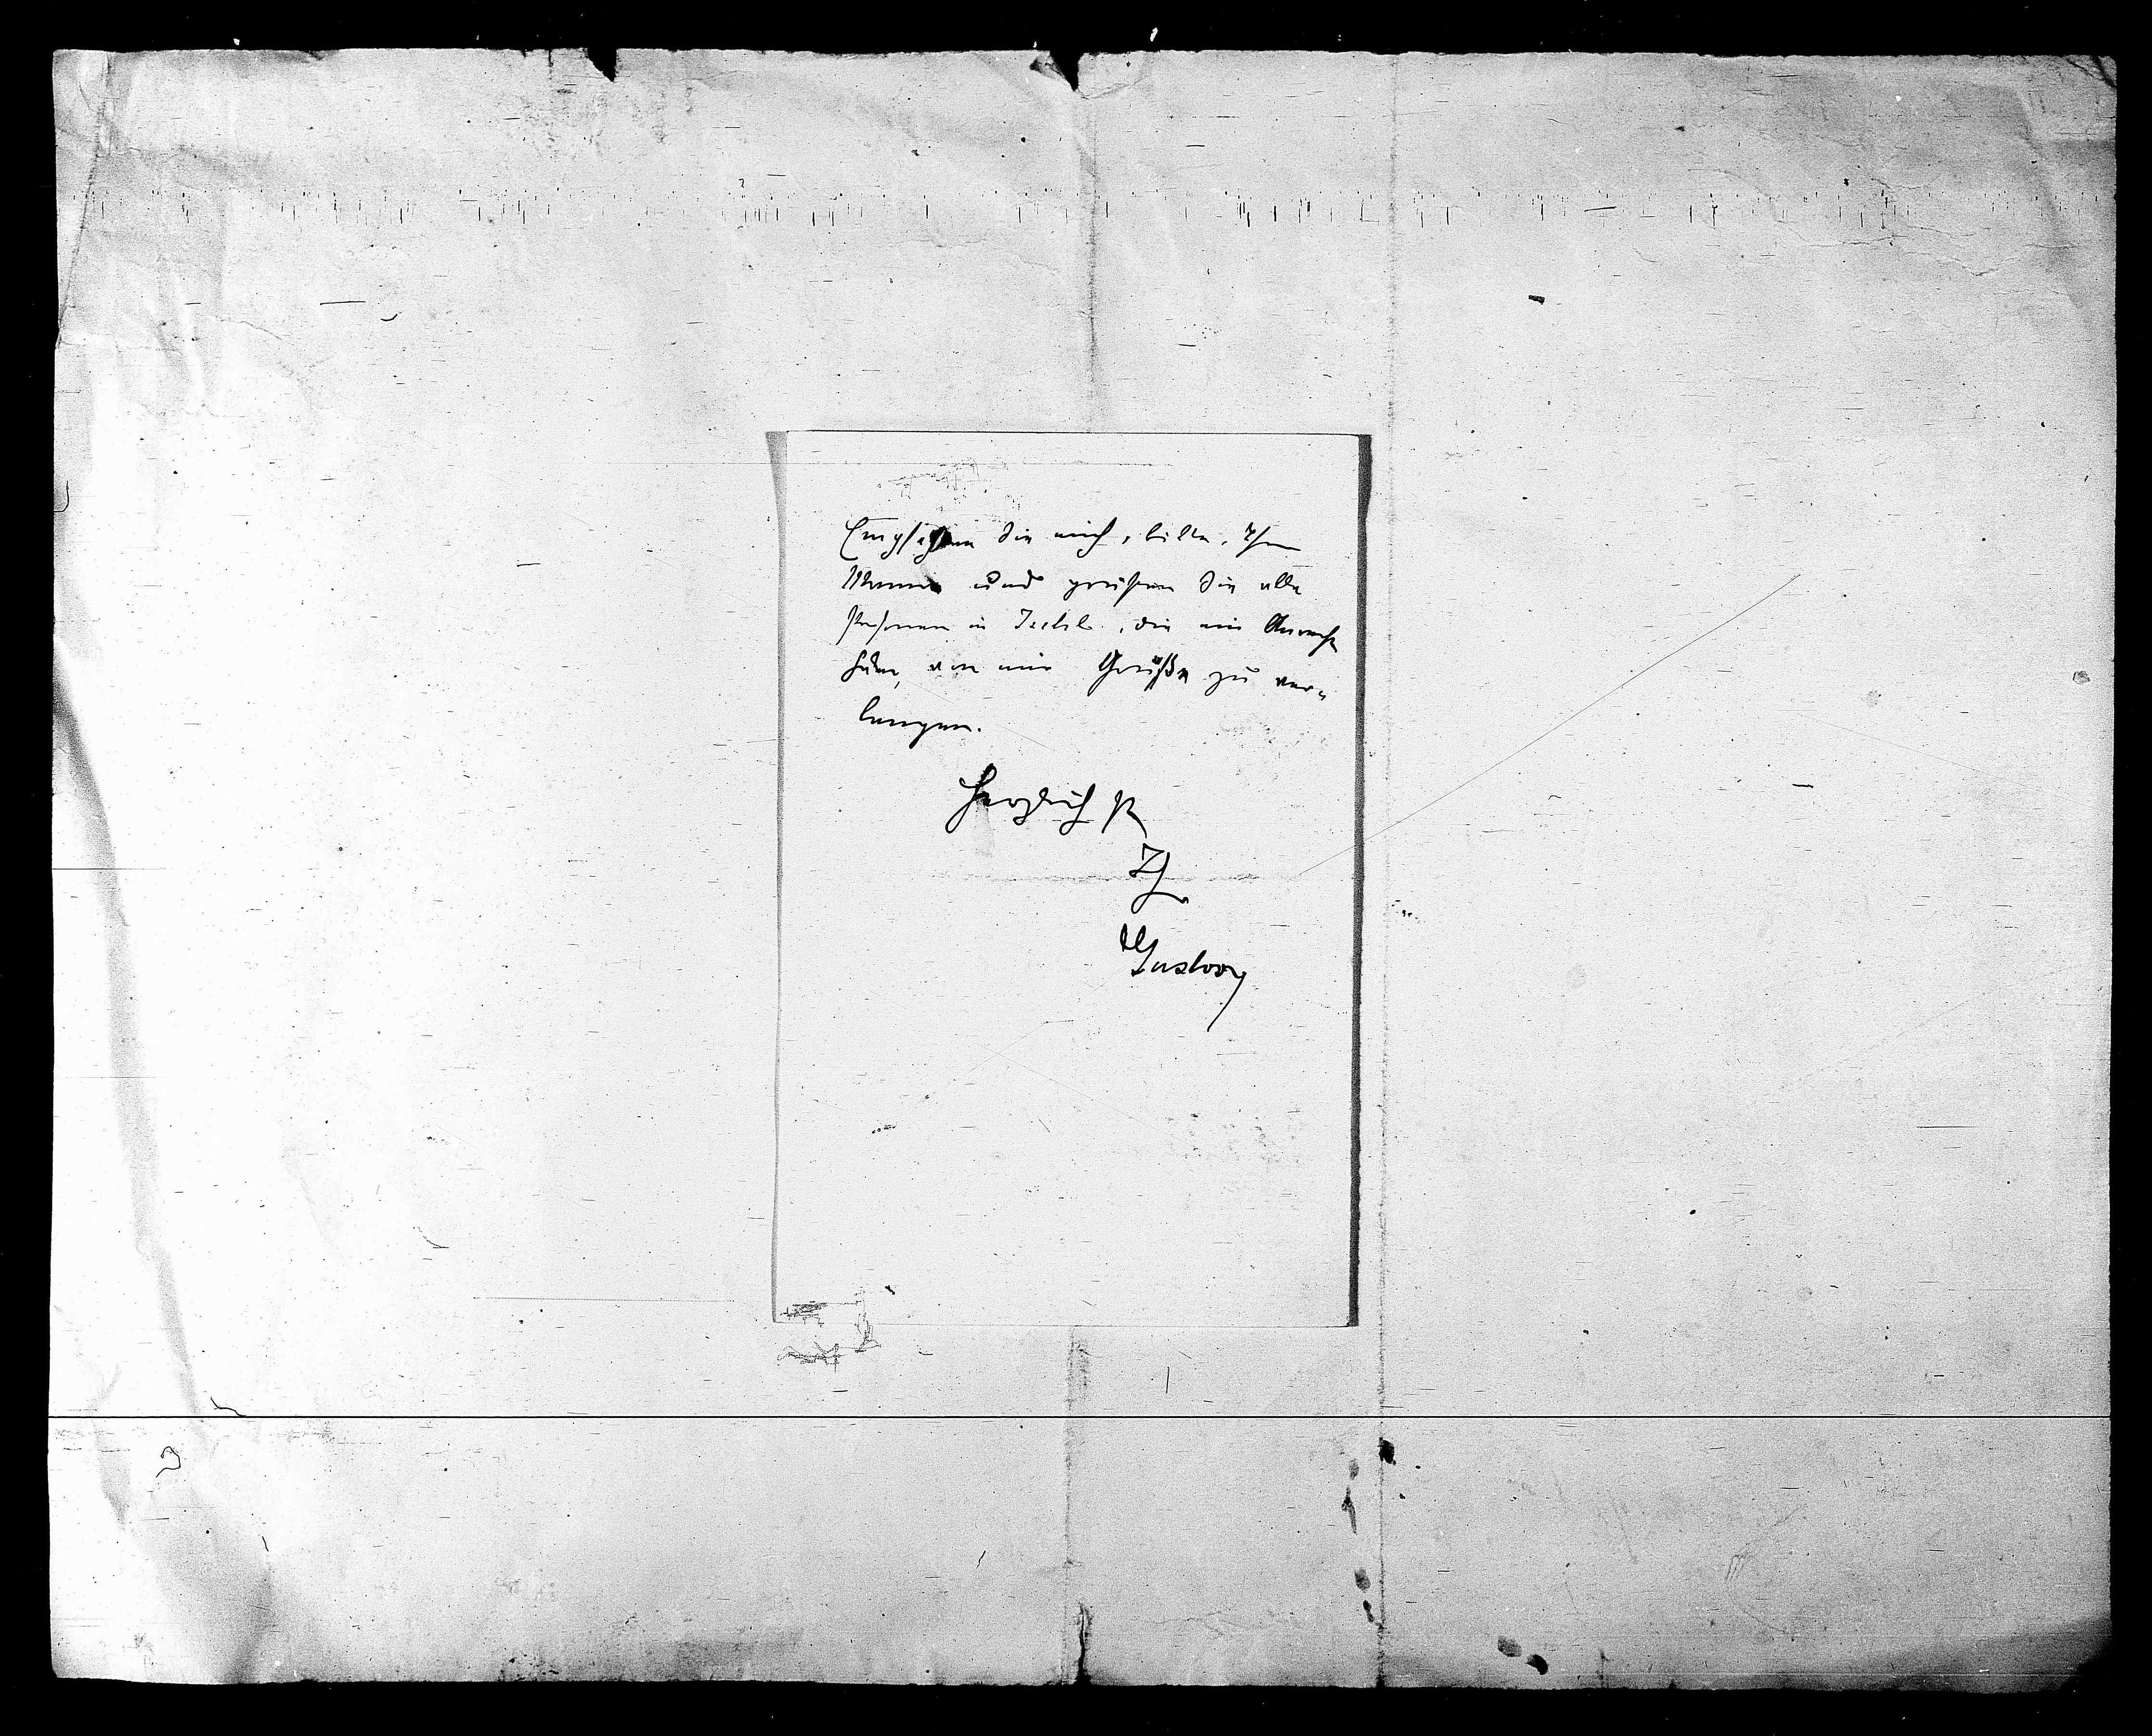 Empfehlen Sie mich, bitte, Ihrer
Mama und grüßen Sie alle
Personen in Ischl, die ein Anrecht
haben, von mir Grüße zu ver=
langen.
Herzlichst
Ihr
Gustav